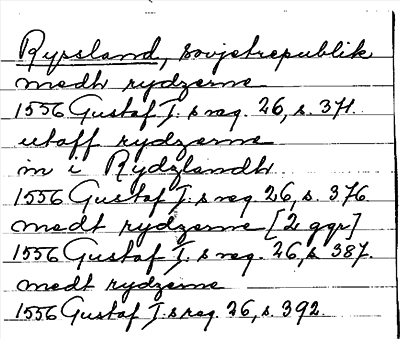 Ryssland, sovjetrepublik
medh rydzerne
1556 Gustaf I:s reg. 26, s. 371.
utaff rydzerne
in i Rydzlandh
1556 Gustaf I:s reg. 26, s. 376
medt rydzerne [2 ggr]
1556 Gustaf I:s reg. 26, s. 387.
medt rydzerne
1556 Gustaf I:s reg. 26, s. 392.